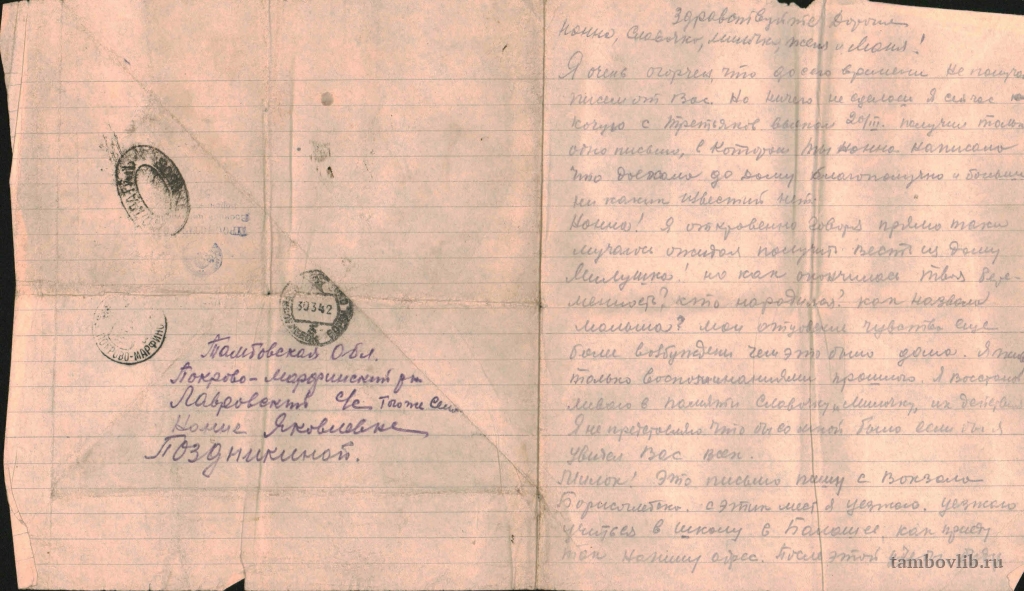 30342
ПОКРОВО-МАРФИНО
Тамбовская Обл.
Покрово-Марфинский р-н
Лавровский с/с того же села
Нонне Яковлевне
Поздникиной.
Здравствуйте Дорогие
Нонна, Славочка, Милочка, Женя и Маня!
Я очень огорчен, что до сего времени не получаю
писем от Вас. Но ничего не сделаеш я сейчас
с Третьяков выехал 20/III. получил только
одно письмо, в котором ты Нонна написала
что доехала до дому благополучно и больше
ни каких известий нет.
Нонна! Я откровенно говоря прямо таки
мучаюсь ожидая получить весть из дому
Милушка! но как окончилась твоя бере-
менность? кто народился? как назвала
малыша? Мои отцовские чувства еще
более возбуждены чем это было дома. Я живу
только воспоминаниями прошлого. Я восстанав-
ливаю в памяти Славочку, Милочку, их
Я не представляю что бы со мной было если бы я
увидел Вас всех.
Милок! Это письмо пишу с Вокзала
с этих мест я уезжаю. уезжаю
учиться в школу в Балашов, как приеду
так напишу адрес. После этой
tambovlib.ru